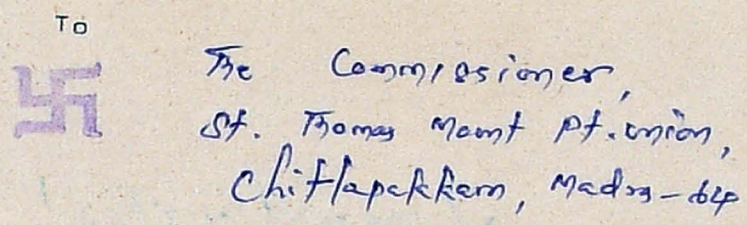 To
The Commissioner,
St. Thomas Mount Pt. union,
Chitlapakkam, Madras-64